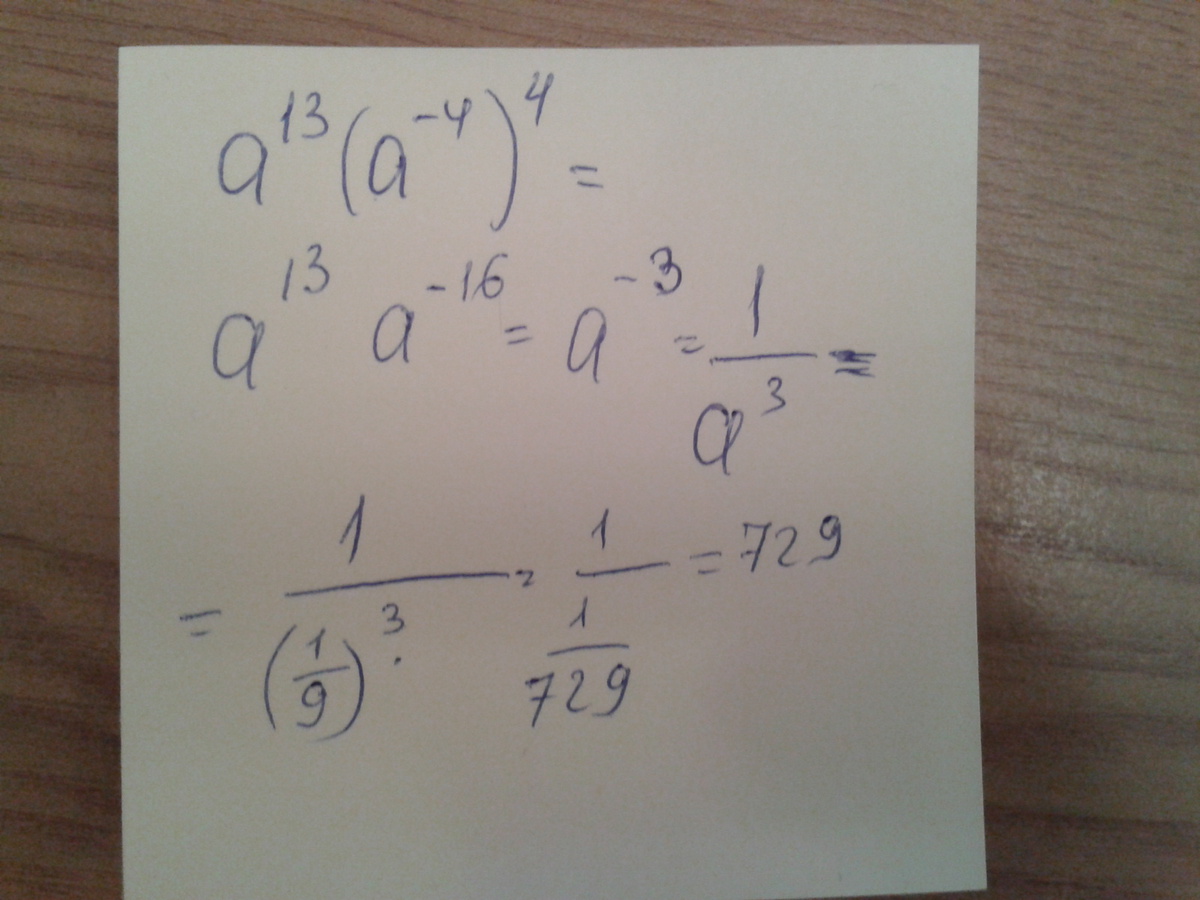 a¹³(a⁻⁴)⁴ =
a¹³ a⁻¹⁶ = a⁻³ = 1/a³ =
= 1/(1/9)³ = 1/(1/729) = 729